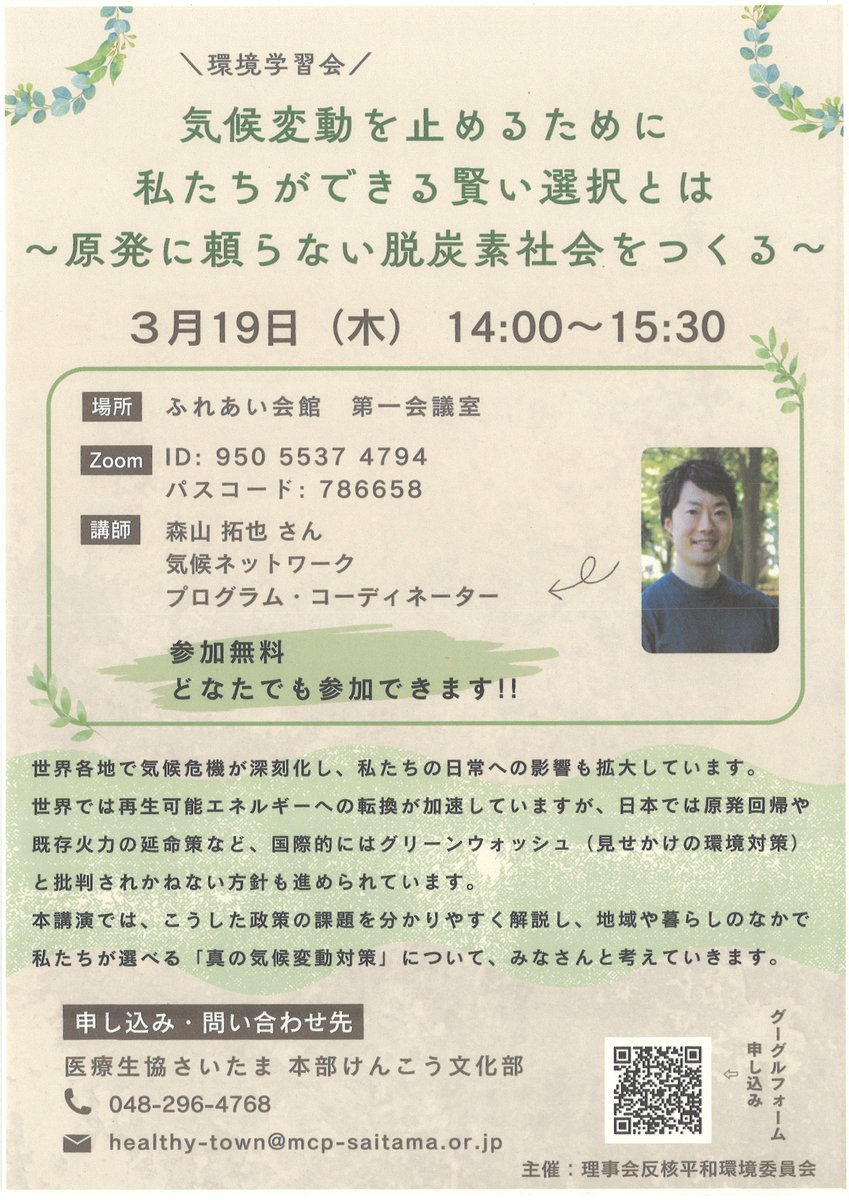 ＼環境学習会／
気候変動を止めるために
私たちができる賢い選択とは
～原発に頼らない脱炭素社会をつくる～
3月19日（木） 14:00～15:30
場所 ふれあい会館 第一会議室
Zoom ID: 950 5537 4794
パスコード: 786658
講師 森山 拓也 さん
気候ネットワーク
プログラム・コーディネーター
参加無料
どなたでも参加できます!!
世界各地で気候危機が深刻化し、私たちの日常への影響も拡大しています。
世界では再生可能エネルギーへの転換が加速していますが、日本では原発回帰や
既存火力の延命策など、国際的にはグリーンウォッシュ（見せかけの環境対策）
と批判されかねない方針も進められています。
本講演では、こうした政策の課題を分かりやすく解説し、地域や暮らしのなかで
私たちが選べる「真の気候変動対策」について、みなさんと考えていきます。
申し込み・問い合わせ先
医療生協さいたま 本部けんこう文化部
048-296-4768
healthy-town@mcp-saitama.or.jp
グーグルフォーム
申し込み
主催：理事会反核平和環境委員会